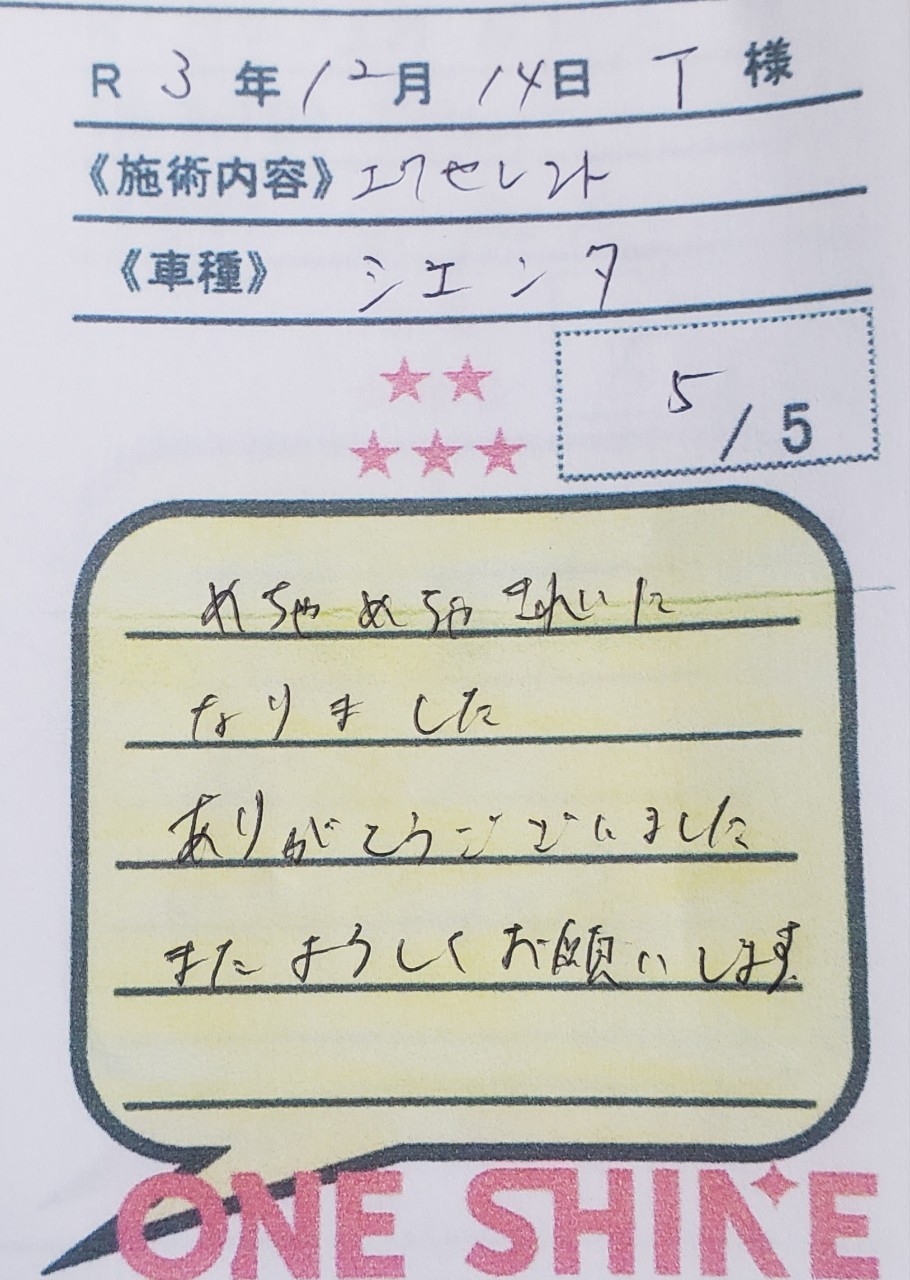 R 3 年 12 月 14 日 T 様
《施術内容》エクセレント
《車種》シエンタ
5 / 5
めちゃめちゃきれいに
なりました
ありがとうございました
またよろしくお願いします
ONE SHINE